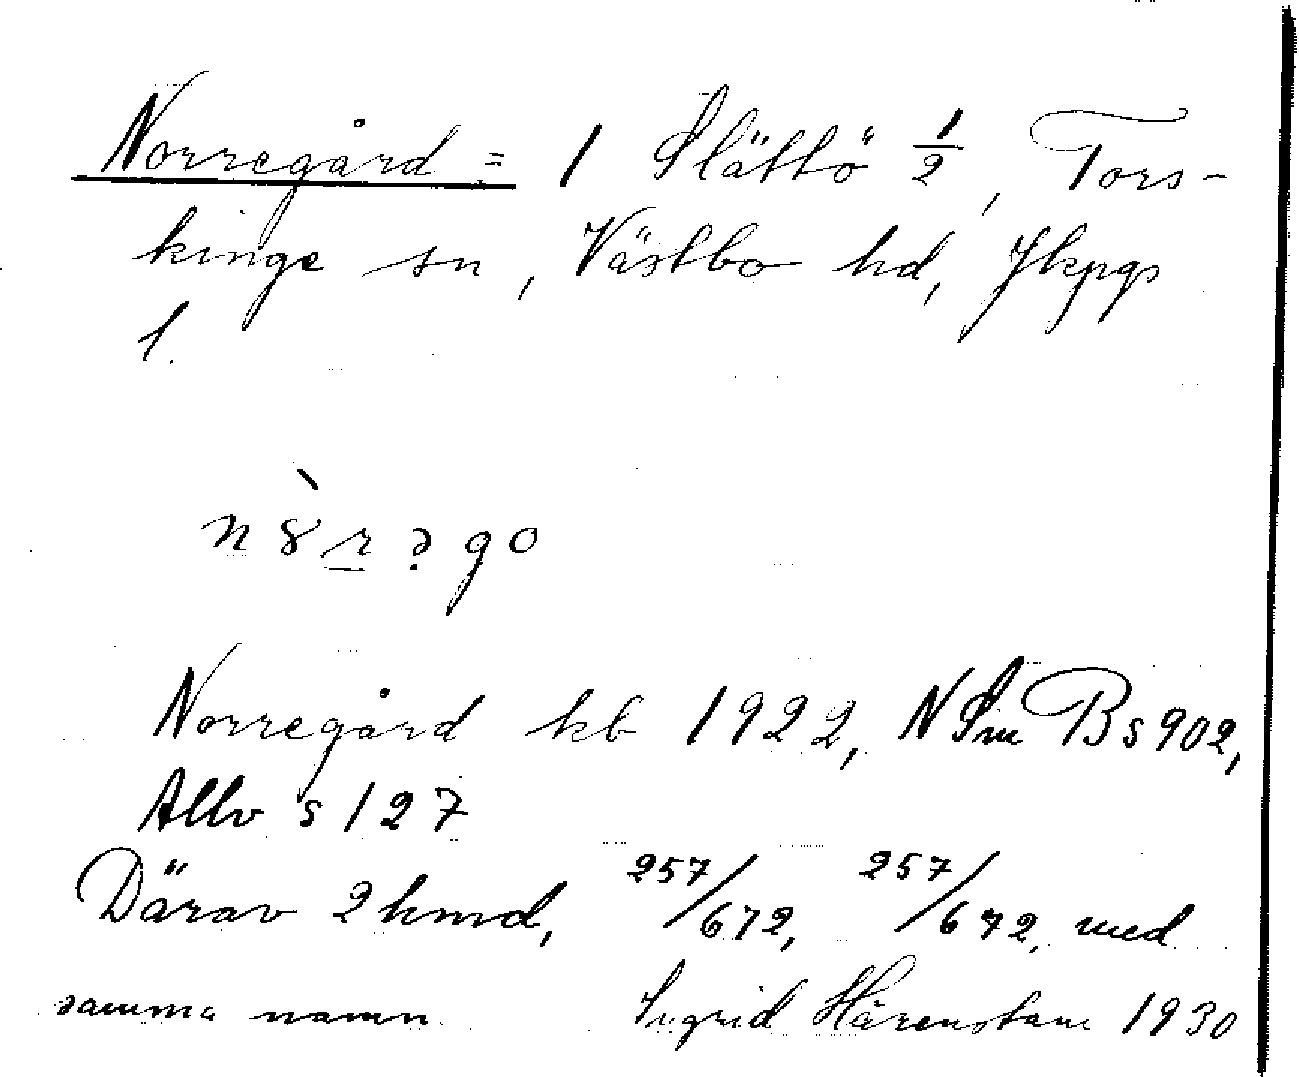 Norregård = 1 Slättö 1/2, Tors-
kinge sn, Västbo hd, Jkpgs
l.
Norregård kb 1922, NSmB s 902,
Allv s 127
Därav 2 hmd, 257/672, 257/672, med
samma namn Ingrid Härenstam 1930